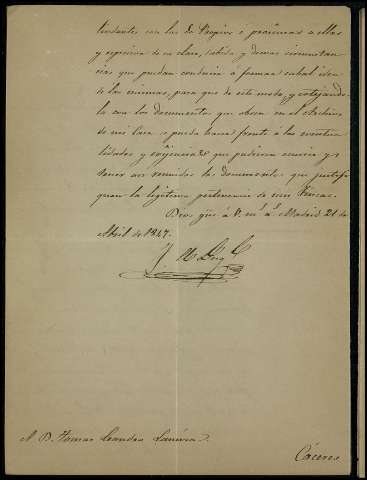 lindantes con los de Propios ó procsimas a ellas
y espresion de su clase, cabida y demas circunstan
cias que puedan conducir á formar cabal idea
de las mismas, para que de este modo, y cotejando
la con los documentos que obran en el Archivo
de mi Casa se pueda hacer frente á las eventua
lidades y exigencias que pudieran ocurrir y
tener asi reunidos los documentos que justifi
quen la legitima pertenencia de mis Fincas.
Dios gue á V. ms. as. Madrid 21 de
Abril de 1847.
A D. Tomas
Cáceres